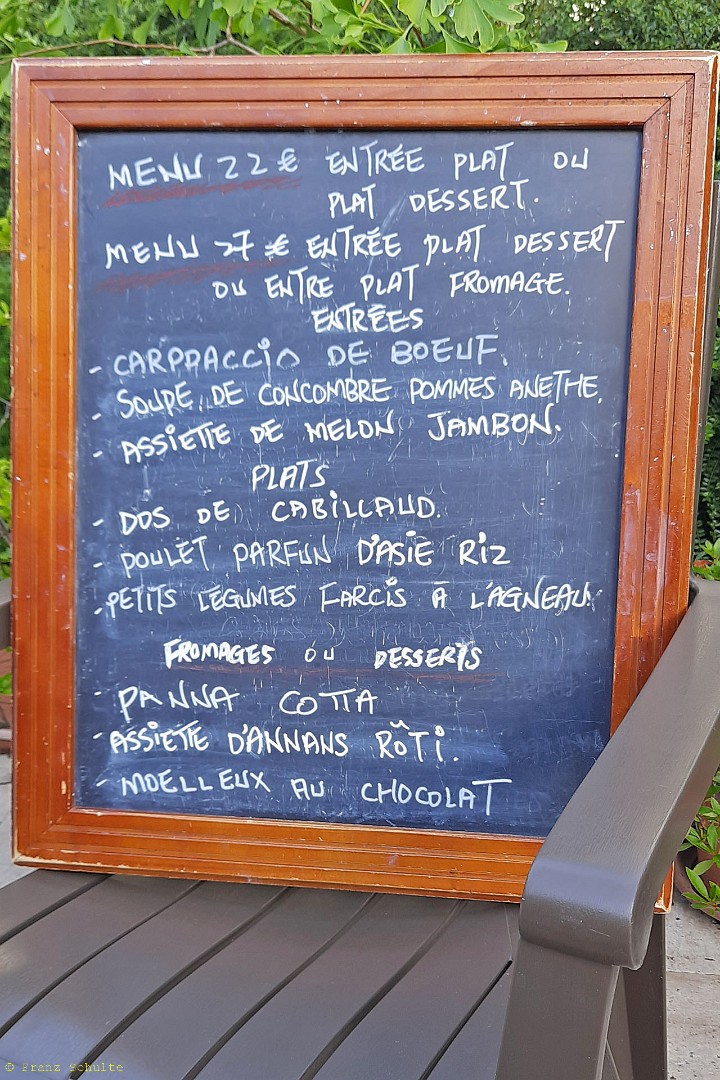 MENU 22 € ENTRÉE PLAT OU
PLAT DESSERT.
MENU 27 € ENTRÉE PLAT DESSERT
OU ENTRE PLAT FROMAGE.
ENTRÉES
- CARPPACCIO DE BOEUF.
- SOUPE DE CONCOMBRE POMMES ANETHE.
- ASSIETTE DE MELON JAMBON.
PLATS
- DOS DE CABILLAUD.
- POULET PARFUN D'ASIE RIZ
- PETITS LÉGUMES FARCIS A L'AGNEAU.
FROMAGES OU DESSERTS
- PANNA COTTA
- ASSIETTE D'ANNANS RÔTI.
- MOELLEUX AU CHOCOLAT
© Franz Schulte